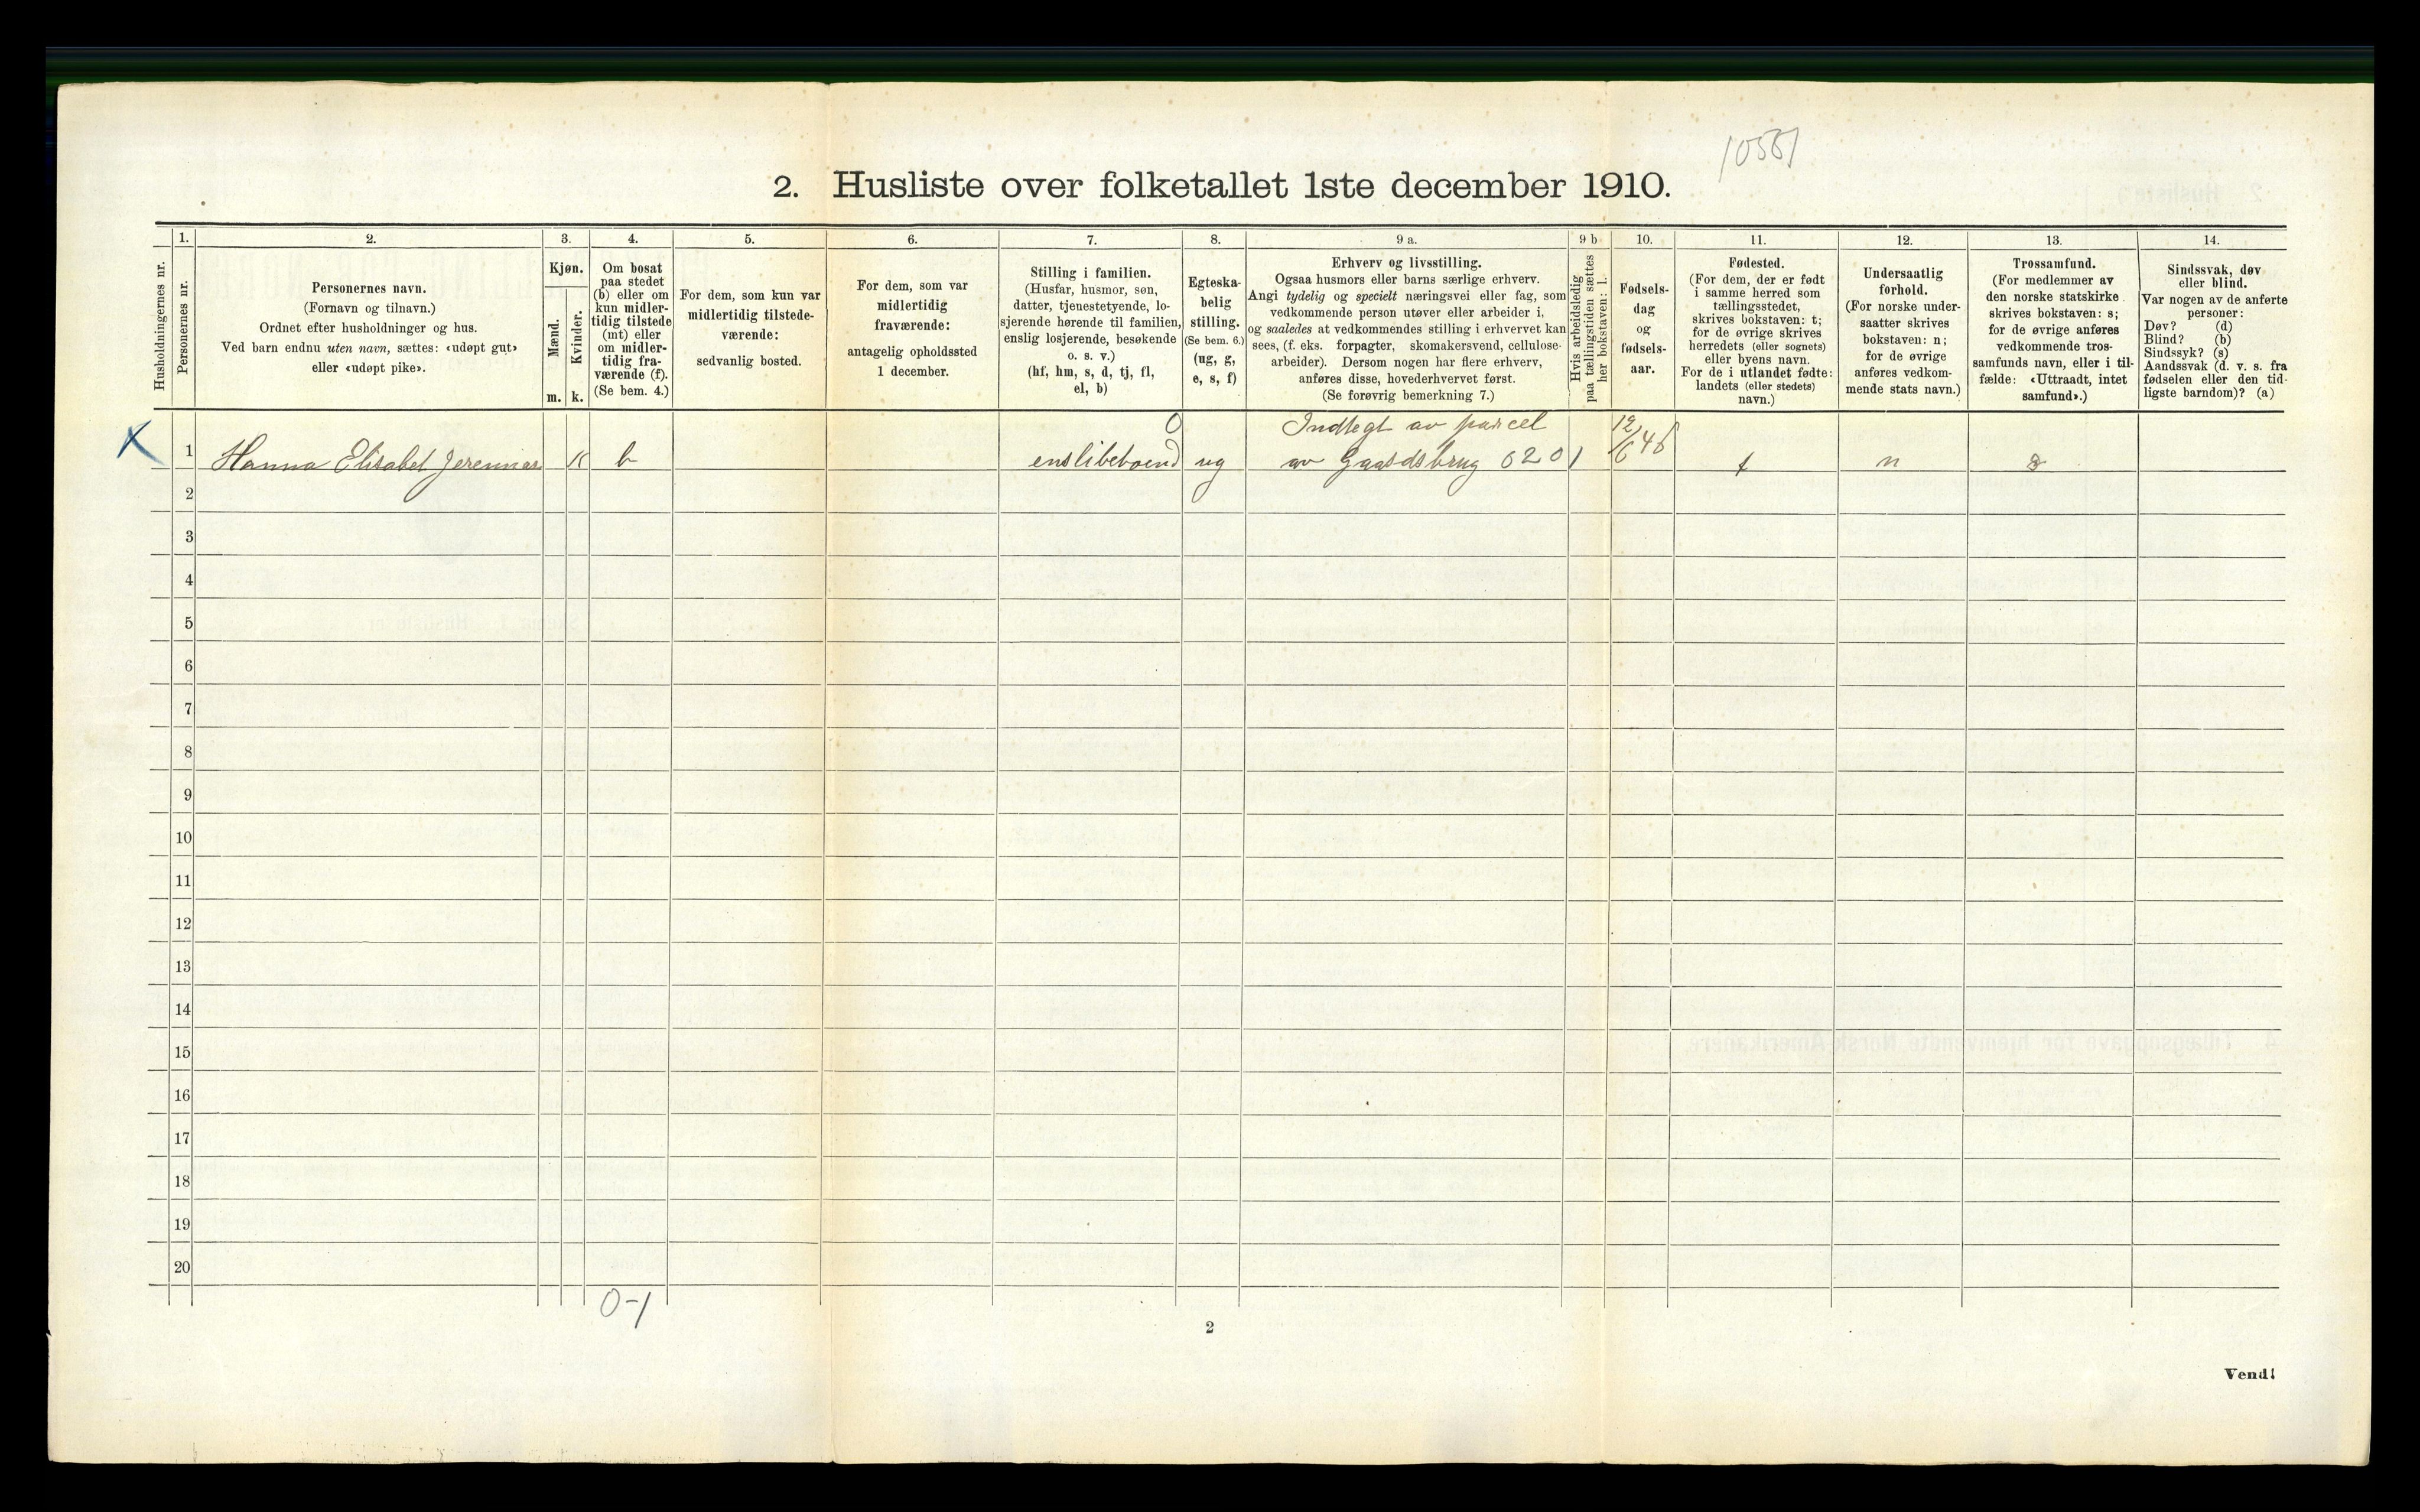 10561
2. Husliste over folketallet 1ste december 1910.
Husholdningernes nr.
1.
Personernes nr.
2.
Personernes navn.
(Fornavn og tilnavn.)
Ordnet efter husholdninger og hus.
Ved barn endnu uten navn, sættes: «udøpt gut»
eller «udøpt pike».
3.
Kjøn.
Mænd.
Kvinder.
m. k.
4.
Om bosat
paa stedet
(b) eller om
kun midler-
tidig tilstede
(mt) eller
om midler-
tidig fra-
værende (f).
(Se bem. 4.)
5.
For dem, som kun var
midlertidig tilstede-
værende:
sedvanlig bosted.
6.
For dem, som var
midlertidig
fraværende:
antagelig opholdssted
1 december.
7.
Stilling i familien.
(Husfar, husmor, søn,
datter, tjenestetyende, lo-
sjerende hørende til familien,
enslig losjerende, besøkende
o. s. v.)
(hf, hm, s, d, tj, fl,
el, b)
8.
Egteska-
belig
stilling.
(Se bem. 6.)
(ug, g,
e, s, f)
9 a.
Erhverv og livsstilling.
Ogsaa husmors eller barns særlige erhverv.
Angi tydelig og specielt næringsvei eller fag, som
vedkommende person utøver eller arbeider i,
og saaledes at vedkommendes stilling i erhvervet kan
sees, (f. eks. forpagter, skomakersvend, cellulose-
arbeider). Dersom nogen har flere erhverv,
anføres disse, hovederhvervet først.
(Se forøvrig bemerkning 7.)
9 b
Hvis arbeidsledig
paa tællingstiden sættes
her bokstaven: l.
10.
Fødsels-
dag
og
fødsels-
aar.
11.
Fødested.
(For dem, der er født
i samme herred som
tællingsstedet,
skrives bokstaven: t;
for de øvrige skrives
herredets (eller sognets)
eller byens navn.
For de i utlandet fødte:
landets (eller stedets)
navn.)
12.
Undersaatlig
forhold.
(For norske under-
saatter skrives
bokstaven: n;
for de øvrige
anføres vedkom-
mende stats navn.)
13.
Trossamfund.
(For medlemmer av
den norske statskirke
skrives bokstaven: s;
for de øvrige anføres
vedkommende tros-
samfunds navn, eller i til-
fælde: «Uttraadt, intet
samfund».)
14.
Sindssvak, døv
eller blind.
Var nogen av de anførte
personer:
Døv? (d)
Blind? (b)
Sindssyk? (s)
Aandssvak (d. v. s. fra
fødselen eller den tid-
ligste barndom)? (a)
0 Indlegt av parcel 12/6 46
X 1 Hanna Elisabet K b ug av Gaardsbrug 620 t n s
2
3
4
5
6
7
8
9
10
11
12
13
14
15
16
17
18
19
20
0-1
2
Vend!